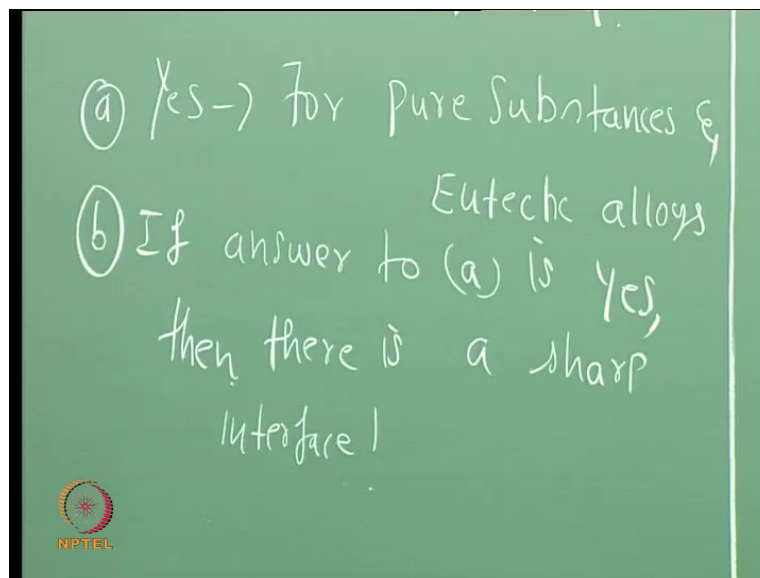 (a) Yes -> For pure substances &
Eutectic alloys
(b) If answer to (a) is yes,
then there is a sharp
interface!
NPTEL